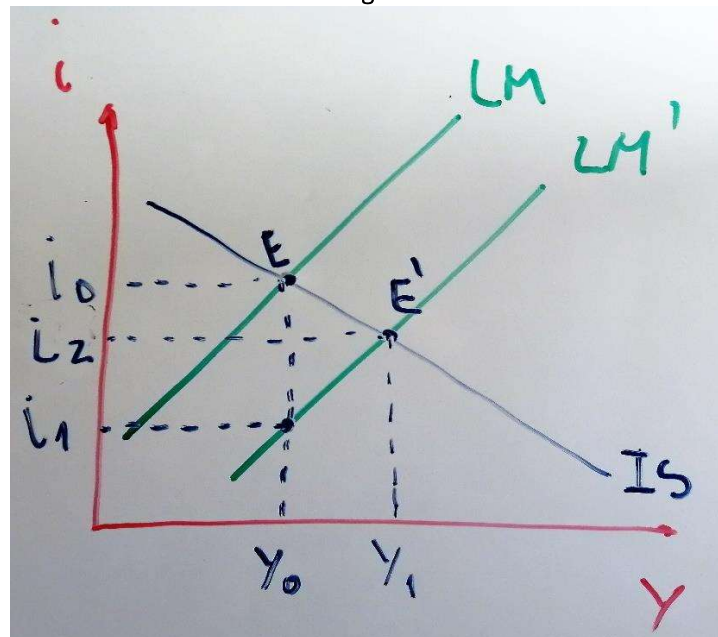 i
LM
LM'
E
i0
E'
i2
i1
IS
Y0
Y1
Y